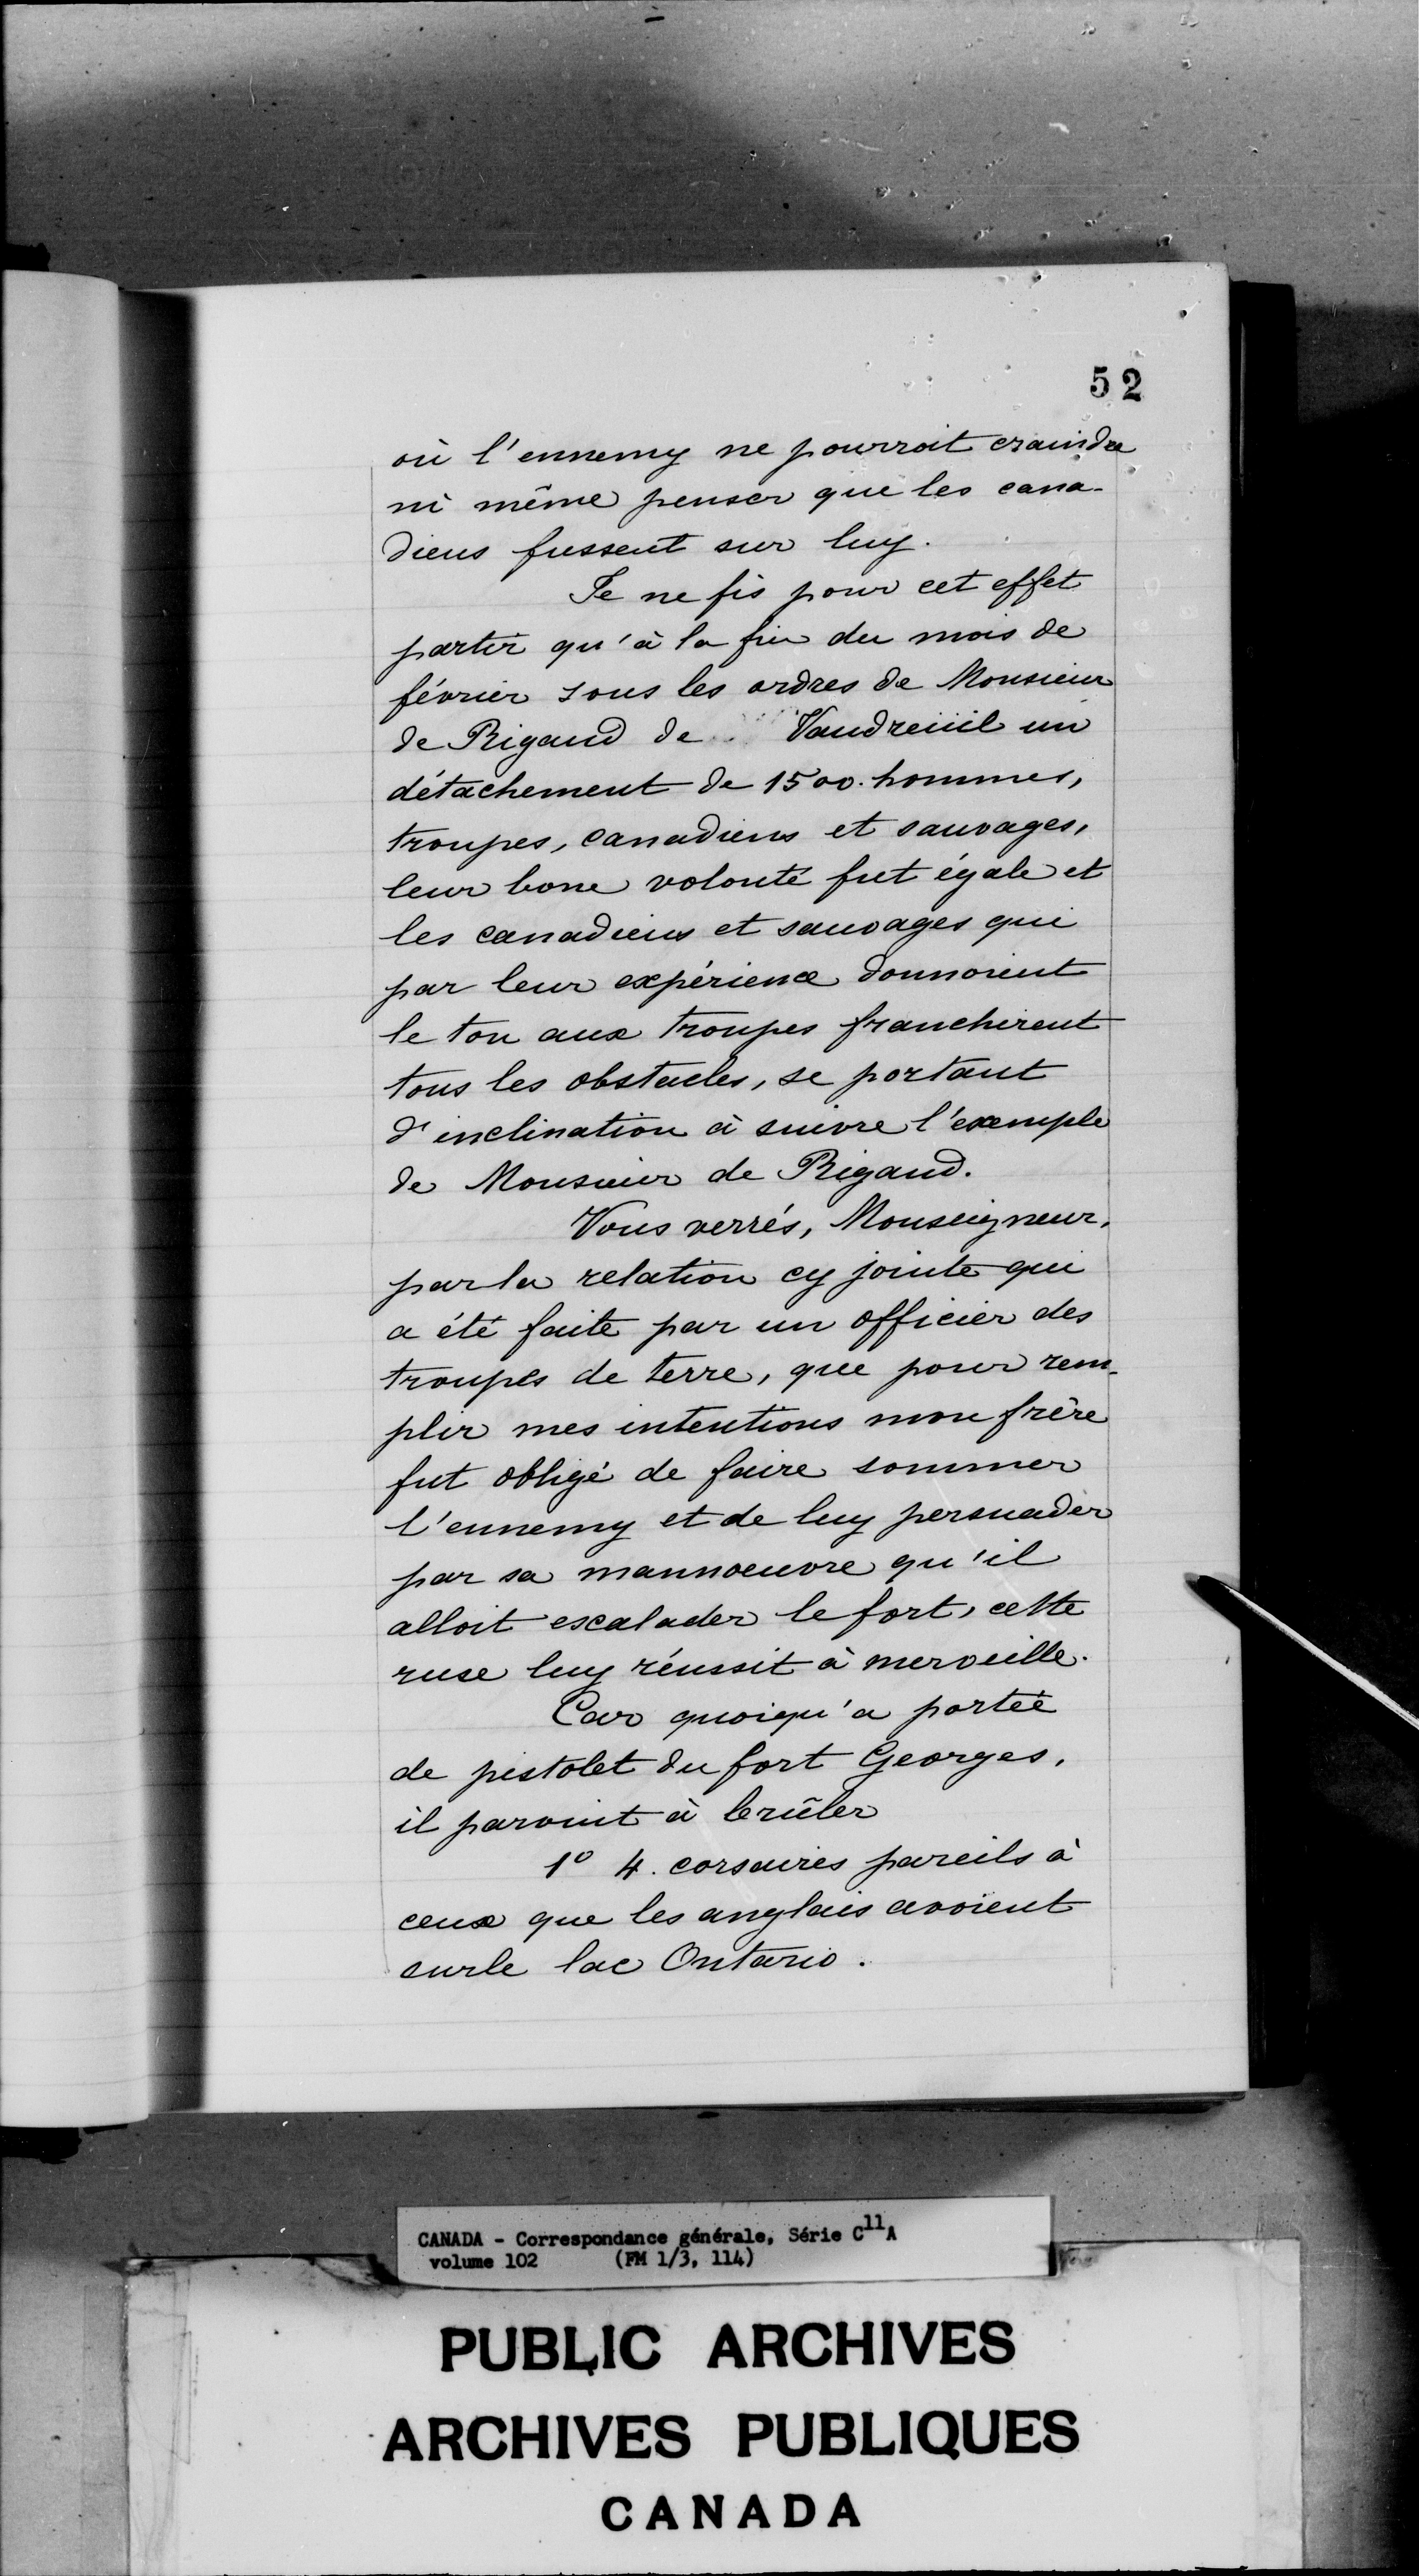 52
où l'ennemy ne pourroit craindre
ni même penser que les cana-
diens fussent sur luy.
Je ne fis pour cet effet
partir qu'à la fin du mois de
février sous les ordres de Monsieur
de Rigaud de Vaudreüil un
détachement de 1500. hommes,
troupes, canadiens et sauvages,
leur bone volonté fut égale et
les canadiens et sauvages qui
par leur expérience donnoient
le ton aux troupes franchirent
tous les obstacles, se portant
d'inclination à suivre l'exemple
de Monsieur de Rigaud.
Vous verrés, Monseigneur,
par la relation cy jointe qui
a été faite par un officier des
troupes de terre, que pour rem-
plir mes intentions mon frère
fut obligé de faire sommer
l'ennemy et de luy persuader
par sa mannoeuvre qu'il
alloit escalader le fort, cette
ruse luy réussit à merveille.
Car quoiqu'a portée
de pistolet du fort Georges,
il parvint à brûler
1º 4. corsaires pareils à
ceux que les anglais avoient
surle lac Ontario.
CANADA - Correspondance générale, Série C11A
volume 102 (FM 1/3, 114)
PUBLIC ARCHIVES
ARCHIVES PUBLIQUES
CANADA